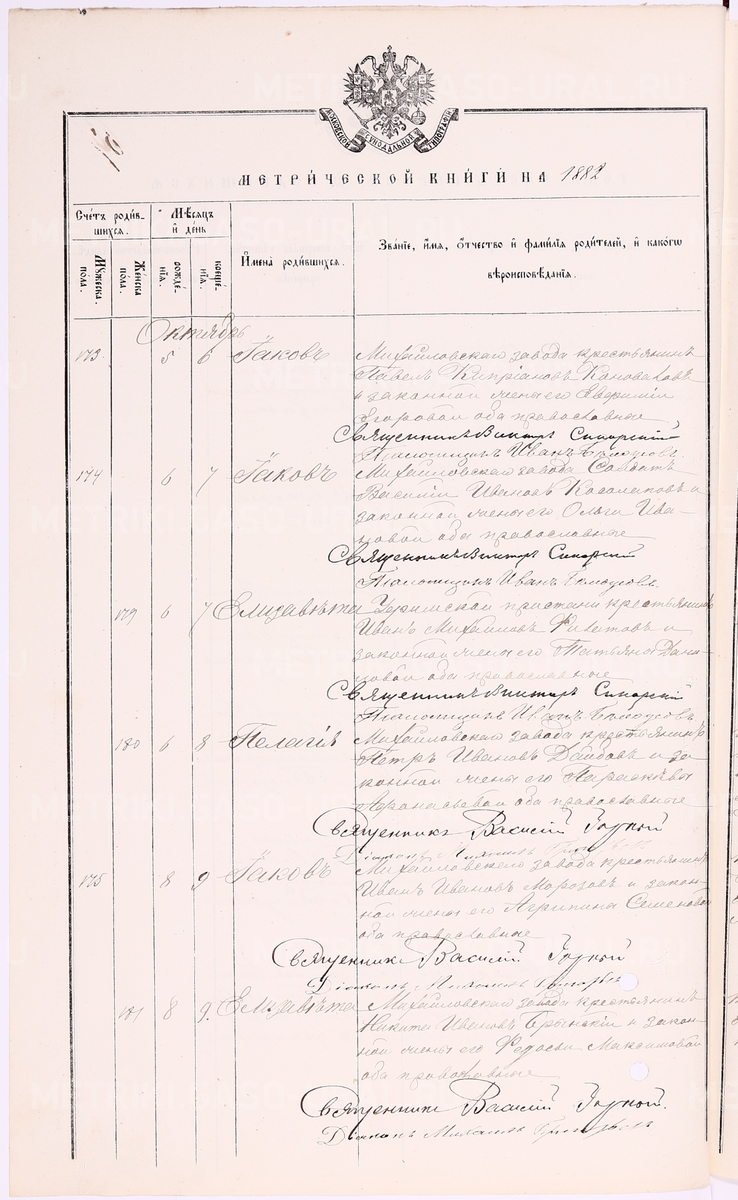 МОСКОВСКОЙ СѴНОДАЛЬНОЙ ТИПОГРАФІИ
МЕТРИ́ЧЕСКОЙ КНИ́ГИ НА 1882
Сче́тъ роди́в-
шихся.
Мꙋжеска
по́ла.
Же́нска
по́ла.
Мѣ́сяцъ
и҆ де́нь
рожде́-
нїѧ.
креще́-
нїѧ.
И҆мена̀ роди́вшихся.
Зва́нїе, и҆́мѧ, ѻ҆́тчество и҆ фами́лїѧ роди́телей, и҆ како́гѡ
вѣроисповѣ́данїѧ.
Октябрь
173. 5 6 Іаковъ Михайловскаго завода крестьянинъ
Павелъ Кипріановъ Коноваловъ
и законной жены его Евфиміи
Егоровой оба православные
Священникъ Викторъ Сикорскій
Псаломщикъ Иванъ
174 6 7 Іаковъ Михайловскаго завода Солдатъ
Василій Ивановъ Косолаповъ и
законной жены его Ольги Ива-
новой оба православные
Священникъ Викторъ Сикорскій
Псаломщикъ Иванъ
179 6 7 Елизавѣта пристани крестьянинъ
Иванъ Михайловъ и
законной жены его Татьяна Дани-
ловой оба православные
Священникъ Викторъ Сикорскій
Псаломщикъ Иванъ
180 6 8 Пелагія Михайловскаго завода крестьянинъ
Петръ Ивановъ и за-
конной жены его Параскевы
Афанасьевой оба православные
Священникъ Василій
175 8 9 Іаковъ Михайловскаго завода крестьянинъ
Иванъ Ивановъ Морозовъ и закон-
ной жены его Агрипина Семеновой
оба православные
Священникъ Василій
Діаконъ Михаилъ
181 8 9. Елизавѣта Михайловскаго завода крестьянинъ
Никита Ивановъ и закон-
ной жены его Федосьи Максимовой
оба православные
Священникъ Василій
Діаконъ Михаилъ